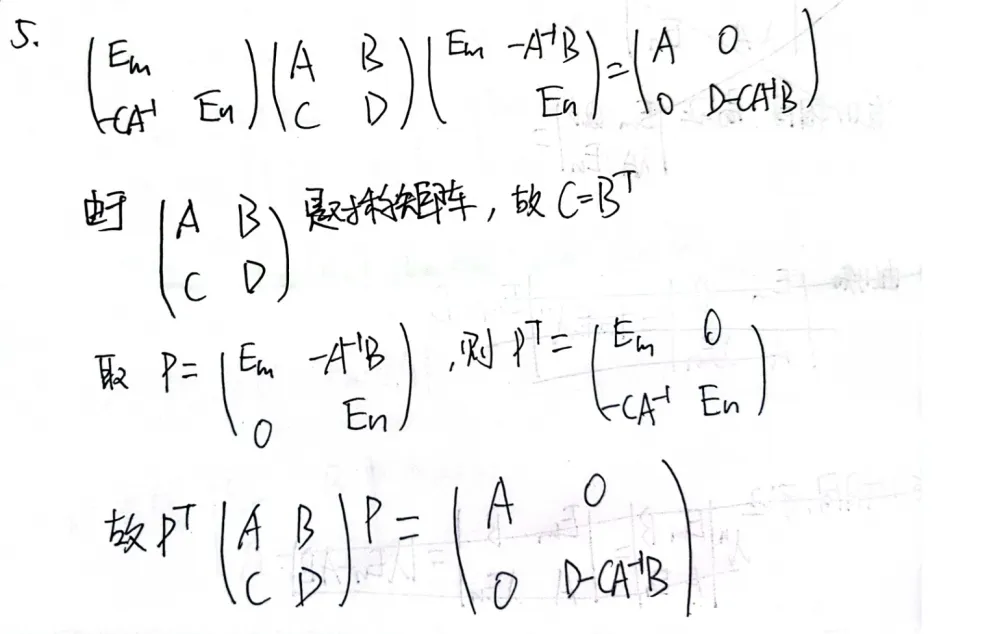 5. $\begin{pmatrix} E_m & \\ -CA^{-1} & E_n \end{pmatrix} \begin{pmatrix} A & B \\ C & D \end{pmatrix} \begin{pmatrix} E_m & -A^{-1}B \\ & E_n \end{pmatrix} = \begin{pmatrix} A & O \\ O & D-CA^{-1}B \end{pmatrix}$
由于 $\begin{pmatrix} A & B \\ C & D \end{pmatrix}$ 是对称矩阵，故 $C=B^T$
取 $P = \begin{pmatrix} E_m & -A^{-1}B \\ O & E_n \end{pmatrix}$，则 $P^T = \begin{pmatrix} E_m & O \\ -CA^{-1} & E_n \end{pmatrix}$
故 $P^T \begin{pmatrix} A & B \\ C & D \end{pmatrix} P = \begin{pmatrix} A & O \\ O & D-CA^{-1}B \end{pmatrix}$